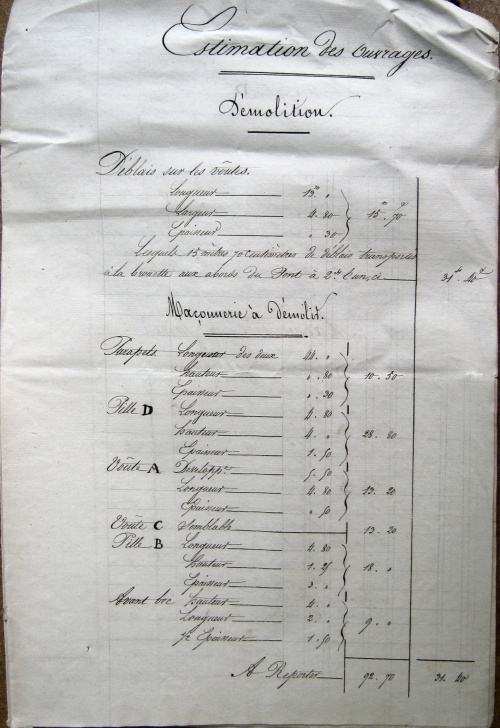 Estimation des ouvrages.
Démolition.
Déblais sur les voûtes.
Longueur 13m "
Largeur 4. 80 15m. 70c
Épaisseur ". 30
Lesquels 15 mètres 70 centimètres de déblais transportés
à la brouette aux abords du Pont à 2f l'un, ci 31f. 40c
Maçonnerie à Démolir.
Parapets. Longueur des deux 44. "
hauteur ". 80 10. 50
Épaisseur ". 30
Pille D Longueur 4. 80
hauteur 4. " 28. 80
Épaisseur 1. 50
Voûte A Developpt 5. 50
Longueur 4. 80 13. 20
Épaisseur ". 50
Voûte C Semblable 13. 20
Pille B Longueur 4. 80
hauteur 1. 25 18. "
Épaisseur 3. "
Avant bec hauteur
Longueur 2. " 9. "
Épaisseur 1. 50
A Reporter 92. 70 31. 40